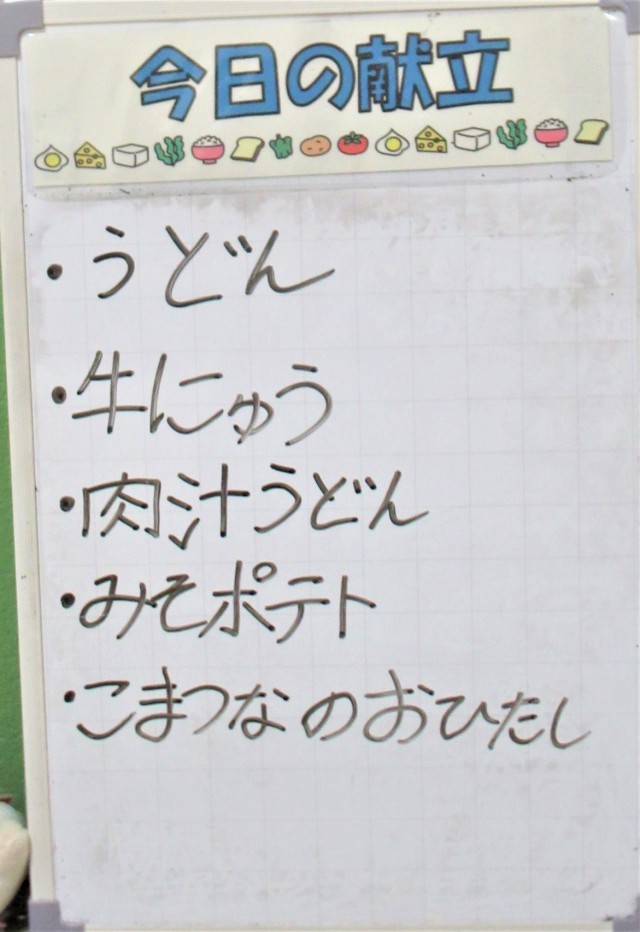 今日の献立
・うどん
・牛にゅう
・肉汁うどん
・みそポテト
・こまつなのおひたし